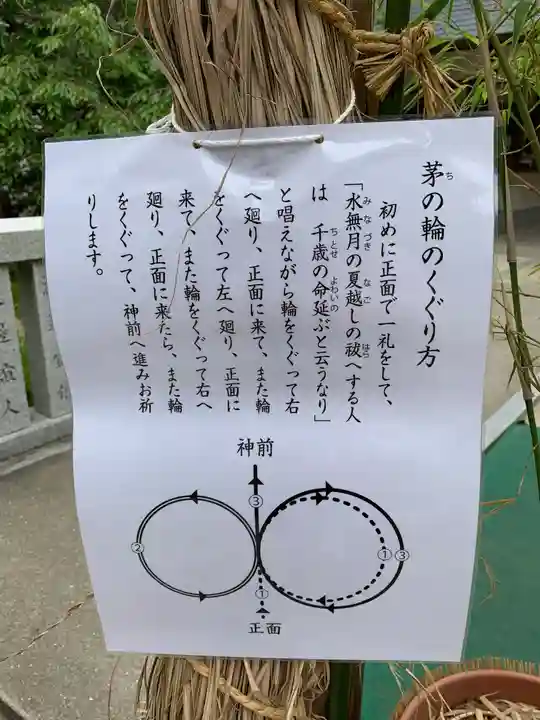 茅の輪のくぐり方
初めに正面で一礼をして、
「水無月の夏越しの祓へする人
は 千歳の命延ぶと云うなり」
と唱えながら輪をくぐって右
へ廻り、正面に来て、また輪
をくぐって左へ廻り、正面に
来て、また輪をくぐって右へ
廻り、正面に来たら、また輪
をくぐって、神前へ進みお祈
りします。
ち
みなづき
なご
はら
ちとせ
よわいの
神前
③
②
①
③
①
正面